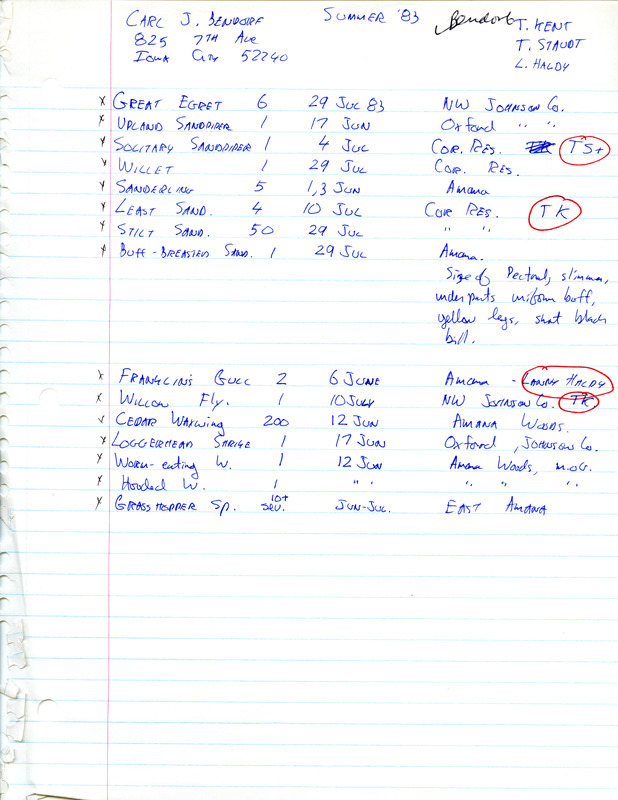 CARL J. BENDORF SUMMER '83 Bendorf T. KENT
825 7TH AVE T. STAUDT
IOWA CITY 52240 L. HALDY
x GREAT EGRET 6 29 JUL 83 NW JOHNSON CO.
x UPLAND SANDPIPER 1 17 JUN Oxford " "
x SOLITARY SANDPIPER 1 4 JUL COR. RES. TSt
x WILLET 1 29 JUL COR. RES.
x SANDERLING 5 1,3 JUN Amana
x LEAST SAND. 4 10 JUL COR RES. TK
x STILT SAND. 50 29 JUL " "
x BUFF-BREASTED SAND. 1 29 JUL Amana.
Size of Pectoral, slimmer,
underparts uniform buff,
yellow legs, short black
bill.
x FRANKLIN'S GULL 2 6 JUNE AMANA - LANNY HALDY
x WILLOW FLY. 1 10 JULY NW JOHNSON CO. TK
✓ CEDAR WAXWING 200 12 JUN AMANA WOODS.
x LOGGERHEAD SHRIKE 1 17 JUN Oxford, JOHNSON CO.
x WORM-eating W. 1 12 JUN Amana Woods, m.ob.
x Hooded W. 1 " " " " "
x GRASSHOPPER Sp. 10+ sev. JUN-JUL. EAST AMANA